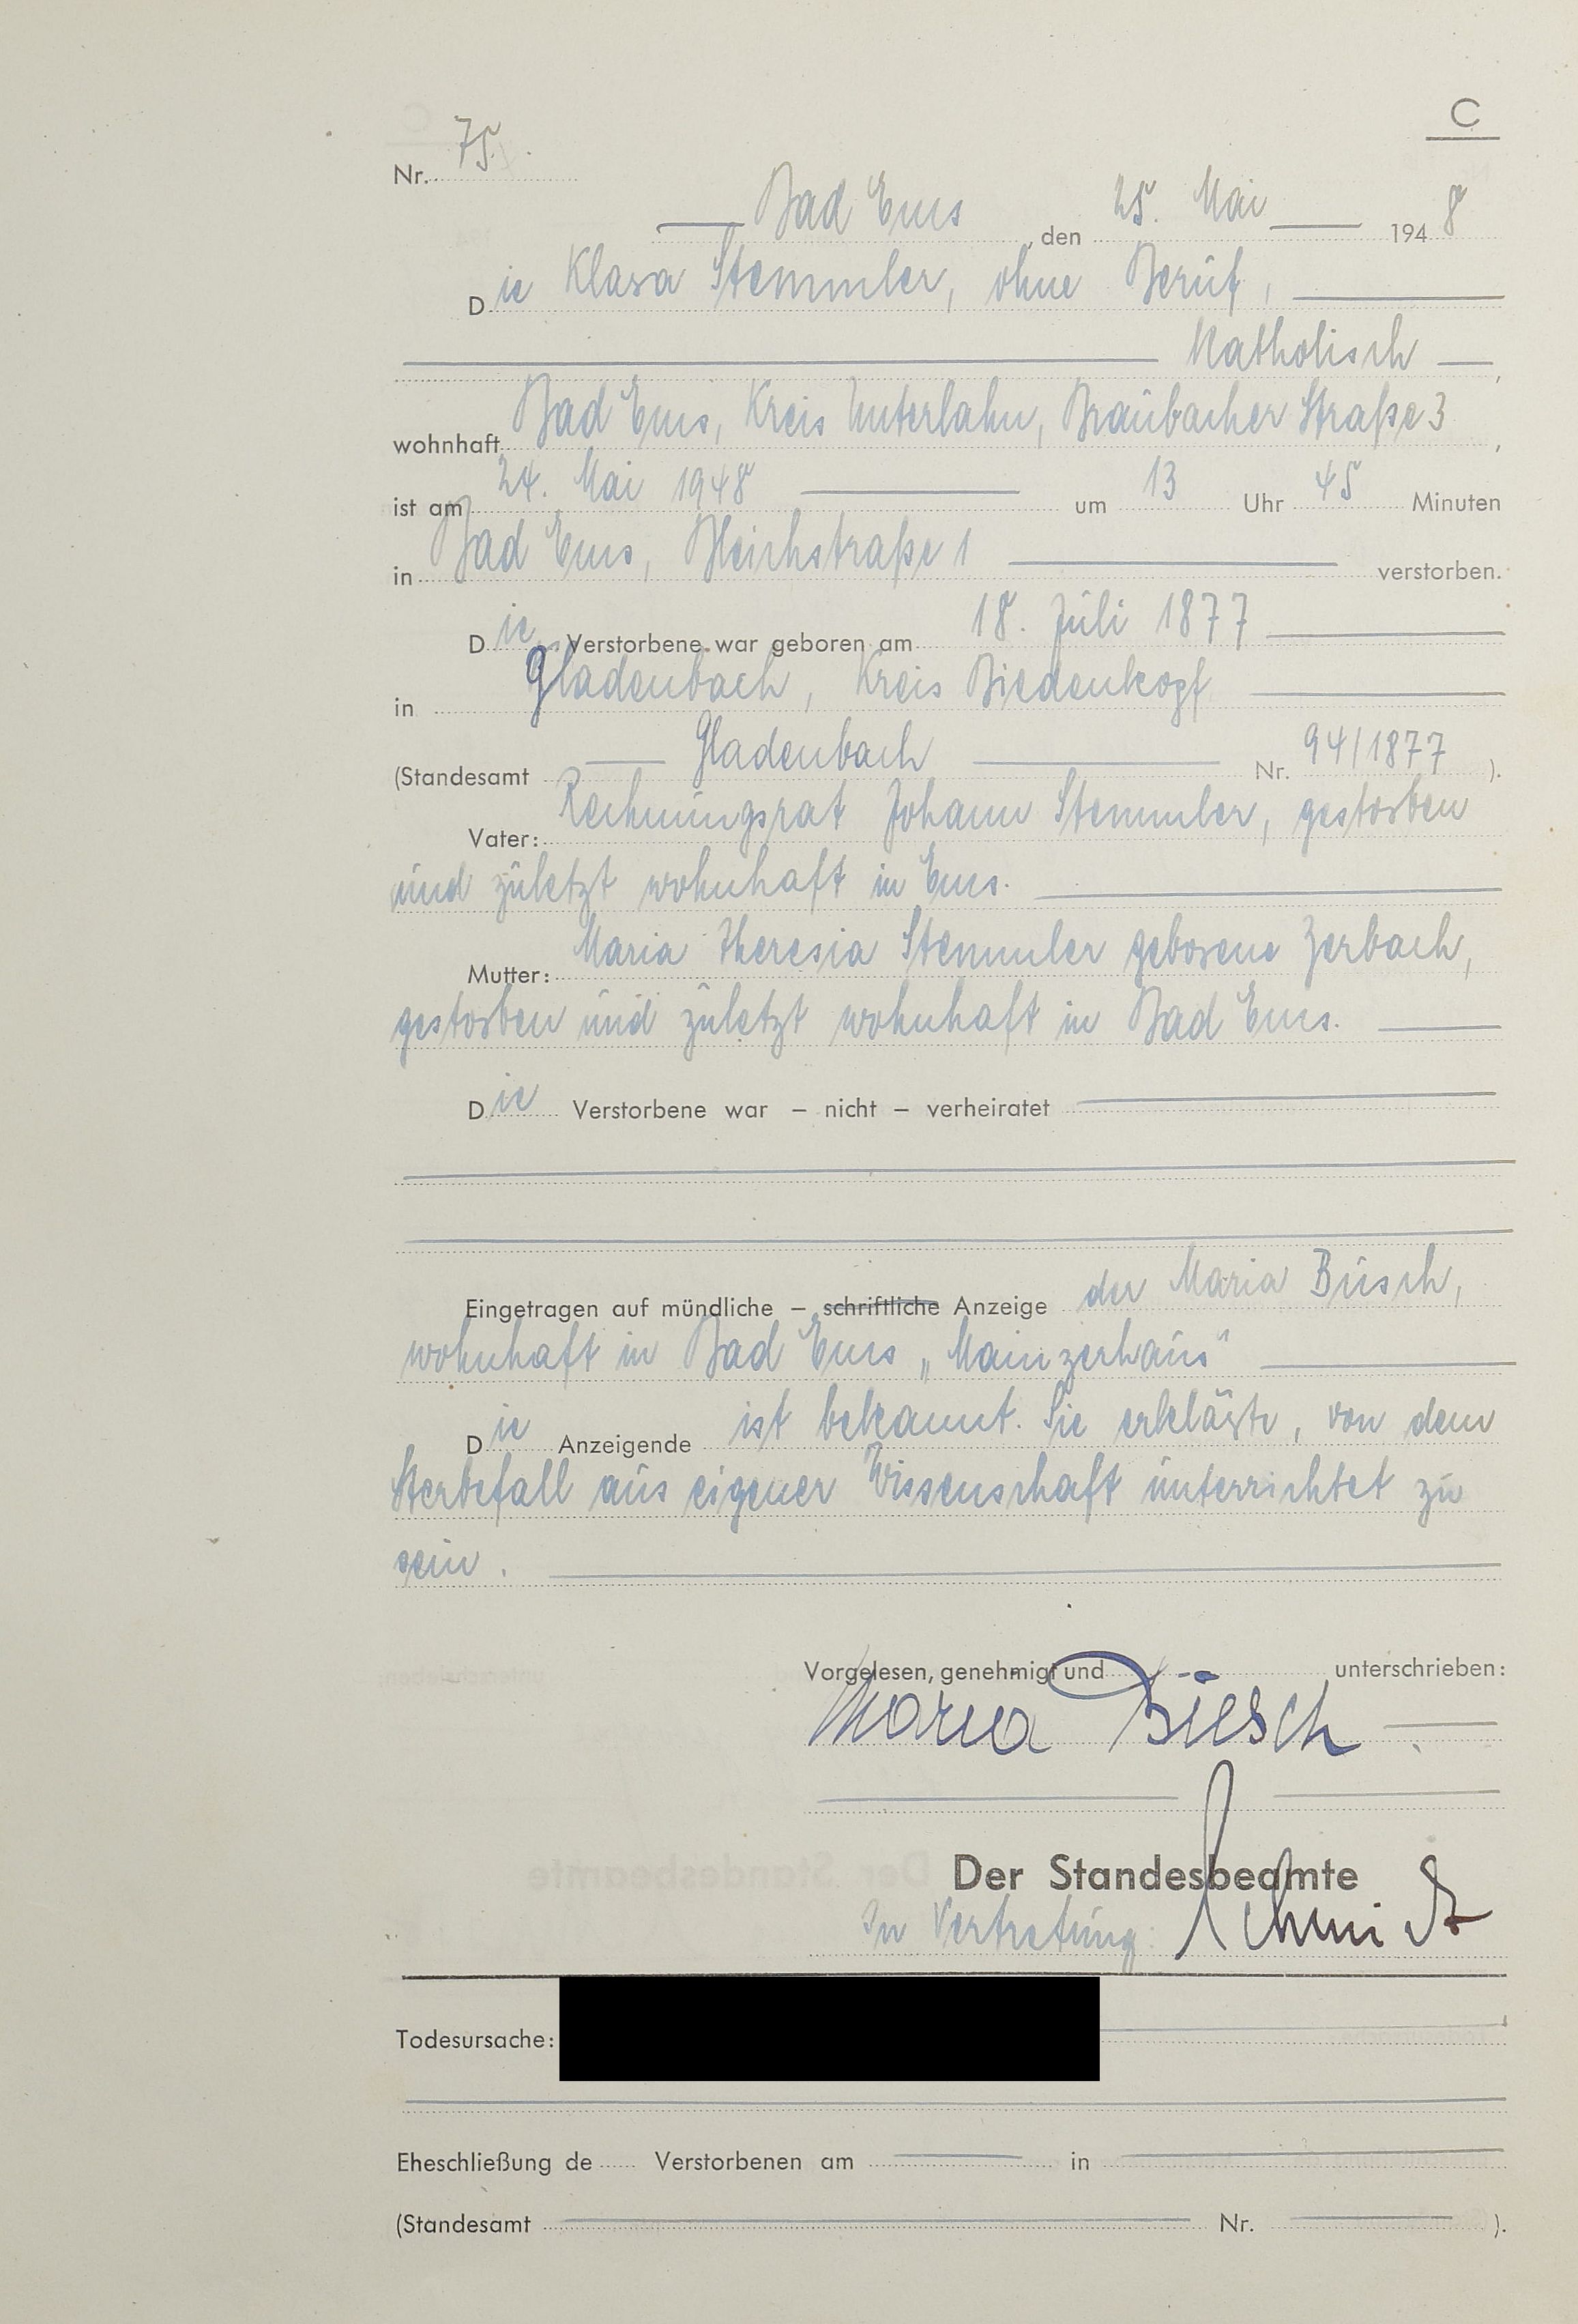 C
Nr. 75.
Bad Ems, den 25. Mai 1948
Die Klara Stemmler, ohne Beruf,
katholisch,
wohnhaft Bad Ems, Kreis Unterlahn, Braubacher Straße 3,
ist am 24. Mai 1948 um 13 Uhr 45 Minuten
in Bad Ems, Bleichstraße 1 verstorben.
Die Verstorbene war geboren am 18. Juli 1877
in Gladenbach, Kreis Biedenkopf
(Standesamt Gladenbach Nr. 94/1877).
Vater: Rechnungsrat Johann Stemmler, gestorben
und zuletzt wohnhaft in Ems.
Mutter: Maria Theresia Stemmler geborene Zerbach,
gestorben und zuletzt wohnhaft in Bad Ems.
Die Verstorbene war – nicht – verheiratet
Eingetragen auf mündliche – schriftliche Anzeige der Maria Büsch,
wohnhaft in Bad Ems „Mainzerhaus"
Die Anzeigende ist bekannt. Sie erklärte, von dem
Sterbefall aus eigener Wissenschaft unterrichtet zu
sein.
Vorgelesen, genehmigt und unterschrieben:
Maria Büsch
Der Standesbeamte
In Vertretung: Schmidt
Todesursache:
Eheschließung de Verstorbenen am in
(Standesamt Nr. ).